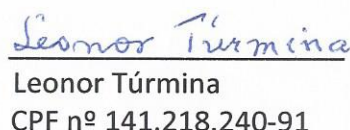 Leonor Túrmina
Leonor Túrmina
CPF nº 141.218.240-91